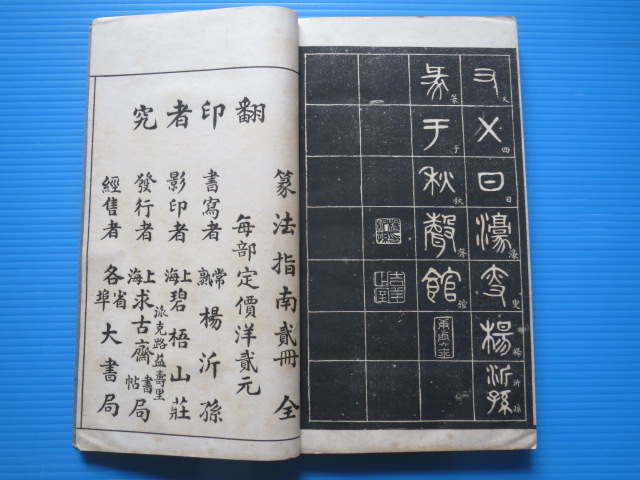 又四日濠叟楊沂孫
篆于秋聲館
又四日濠叟楊沂孫
篆于秋聲館
翻印者究
篆法指南貳冊全
每部定價洋貳元
書寫者常熟楊沂孫
影印者上海碧梧山莊
派克路益壽里
發行者上海求古齋書帖局
經售者各省埠大書局